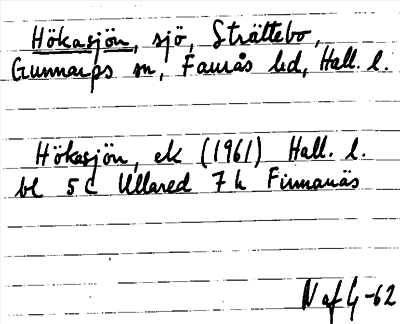 Hökasjön, sjö, Sträттebo,
Gunnarps sn, Faurås hd, Hall. l.
Hökasjön, ek (1961) Hall. l.
bl 5C Ullared 7 h Finnanäs
N af G -62